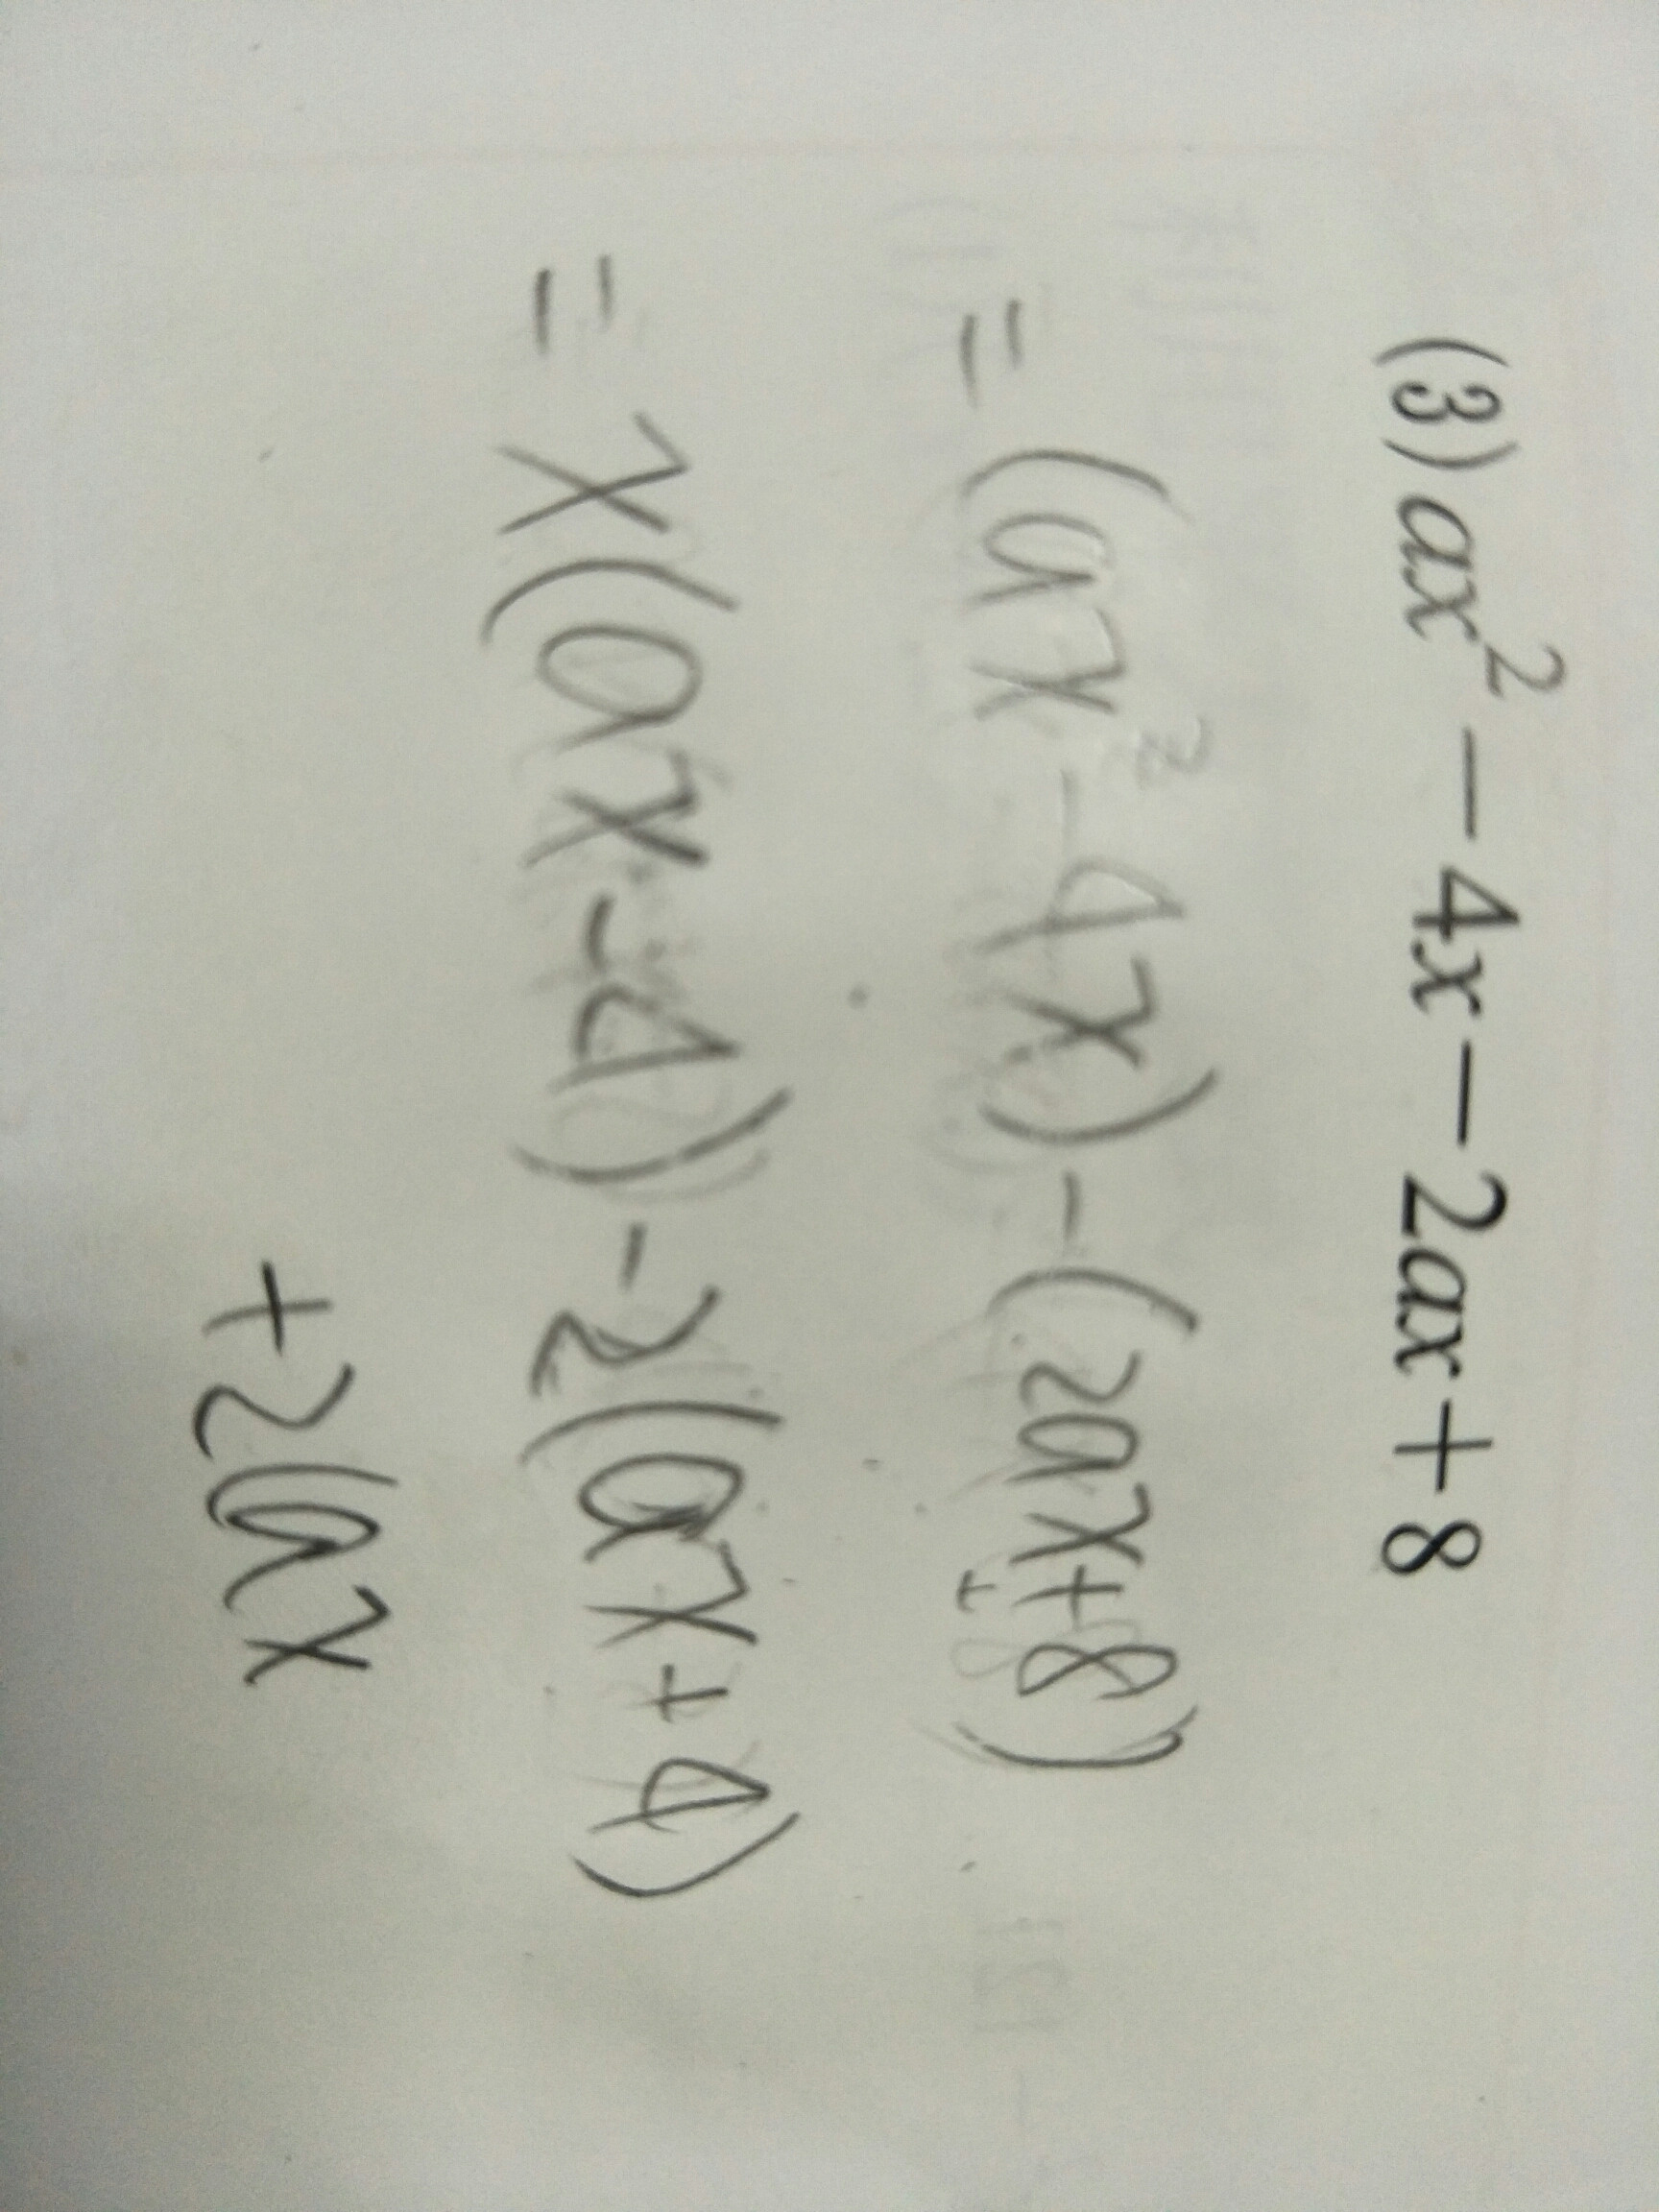 (3) ax² − 4x − 2ax + 8
= (ax² − 4x) − (2ax+8)
= x(ax−4) − 2(ax+4)
+2(ax